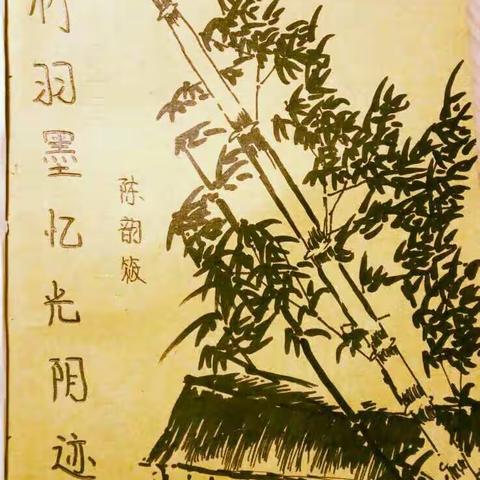 竹羽墨忆光阴迹
陈韵筱